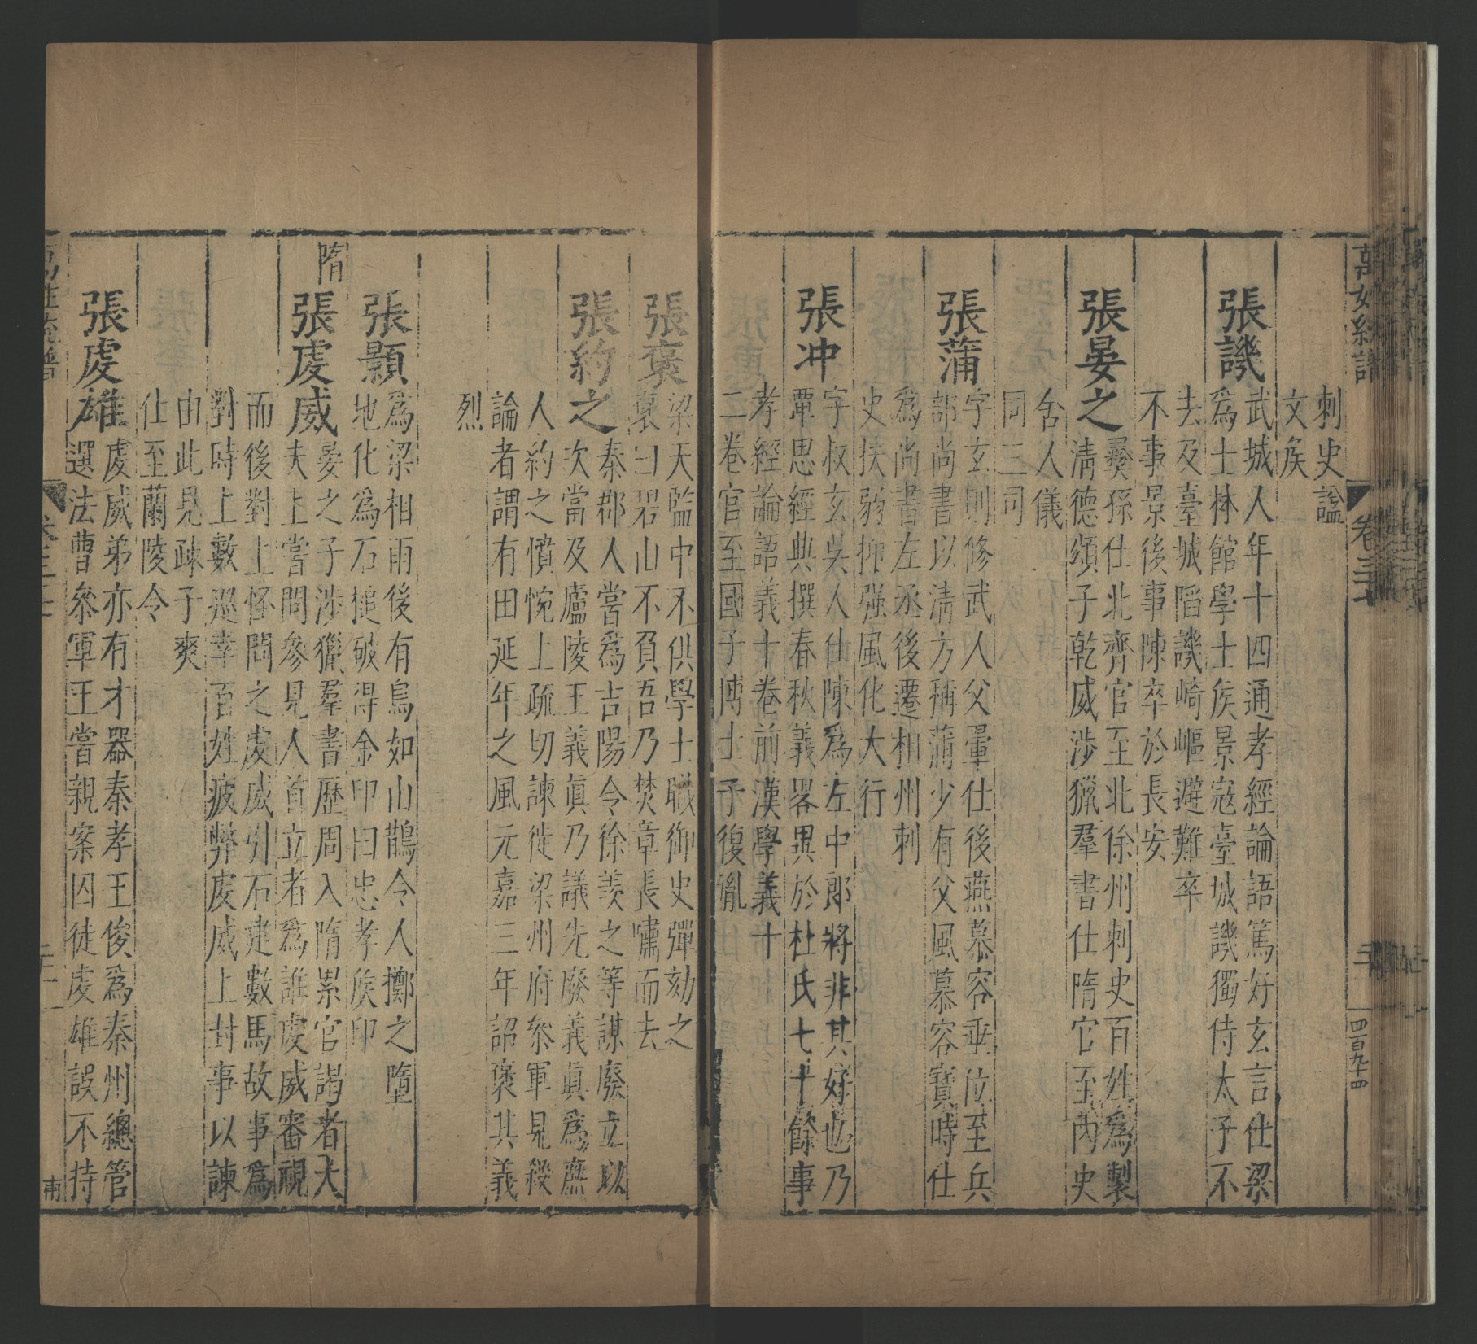 刺史謚
文侯
張譏
武城人年十四通孝經論語篤好玄言仕梁
爲士林館學士侯景寇臺城譏獨侍太子不
去及臺城陷譏崎嶇避難卒
不事景後事陳卒於長安
張晏之
彞孫仕北齊官至北徐州刺史百姓爲製
淸德頌子乾威涉獵羣書仕隋官至內史
舍人儀
同三司
張蒲
字玄則修武人父㬈仕後燕慕容垂位至兵
部尚書以淸方稱蒲少有父風慕容寶時仕
爲尚書左丞後遷相州刺
史扶弱抑强風化大行
張冲
字叔玄吳人仕陳爲左中郎將非其好也乃
覃思經典撰春秋義畧異於杜氏七十餘事
孝經論語義十卷前漢學義十
二卷官至國子博士子復胤
張褒
梁天監中不供學士職御史彈劾之
褒曰碧山不負吾乃焚章長嘯而去
張約之
秦郡人嘗爲吉陽令徐羨之等謀廢立以
次當及廬陵王義眞乃議先廢義眞爲庶
人約之憤惋上疏切諫徙梁州府叅軍見殺
論者謂有田延年之風元嘉三年詔褒其義
烈
張顥
爲梁相雨後有鳥如山鵲令人擲之墮
地化爲石搥破得金印曰忠孝侯印
隋
張䖍威
晏之子涉獵羣書歷周入隋累官謁者大
夫上嘗問參見人首立者爲誰䖍威審視
而後對上怪問之䖍威引石建數馬故事爲
對時上數廵幸百姓疲弊䖍威上封事以諫
由此見疎子爽
仕至蘭陵令
張䖍雄
䖍威弟亦有才器秦孝王俊爲秦州總管
選法曹叅軍王嘗親案囚徒䖍雄誤不持